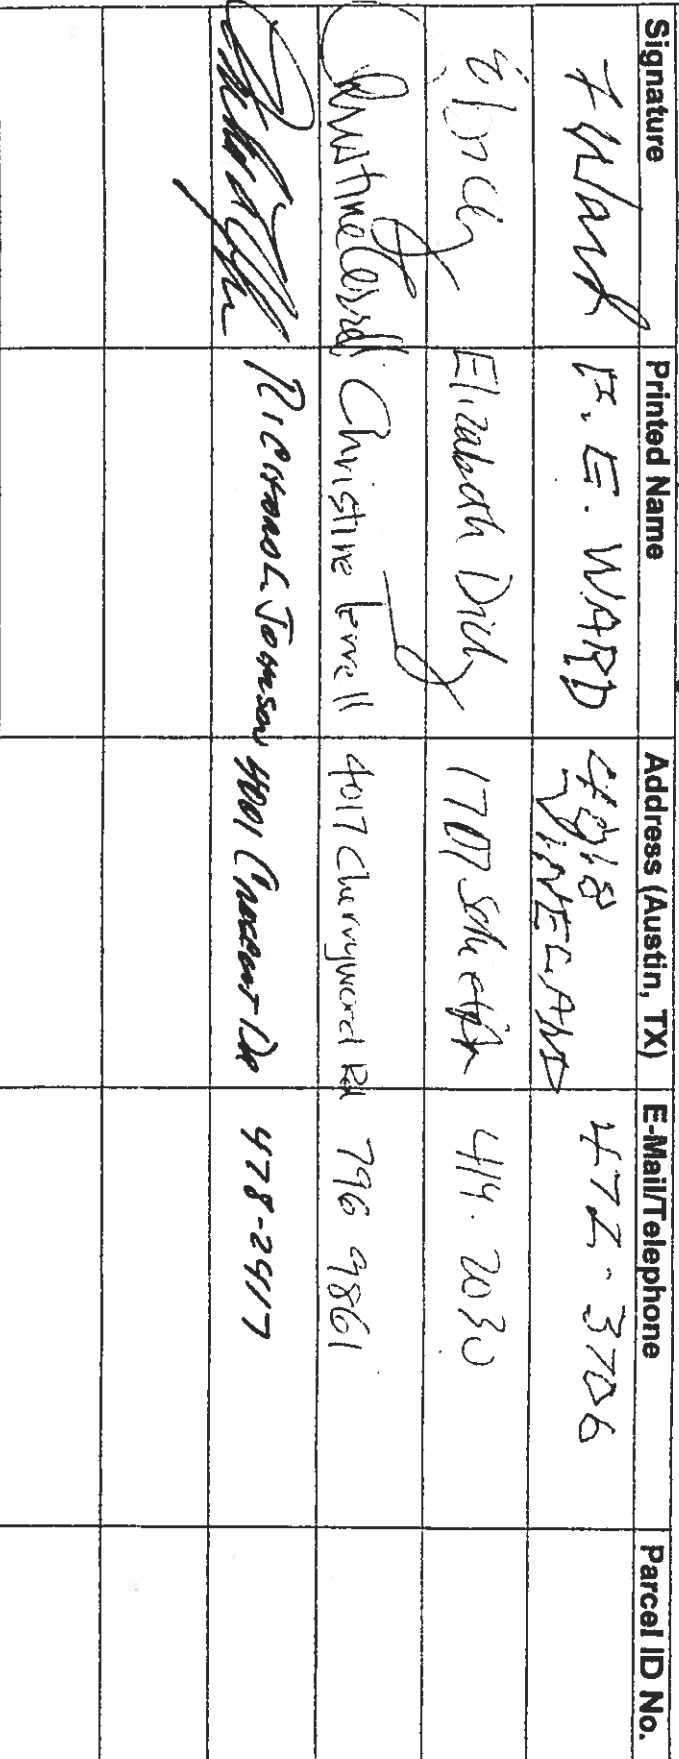 Signature Printed Name Address (Austin, TX) E-Mail/Telephone Parcel ID No.
F. E. WARD 4018 VINELAND 472-3706
Elizabeth 1707 414. 2030
Christine 4017 Cherrywood Rd 796 9861
Richard L Johnson 4001 Crescent Dr 478-2417